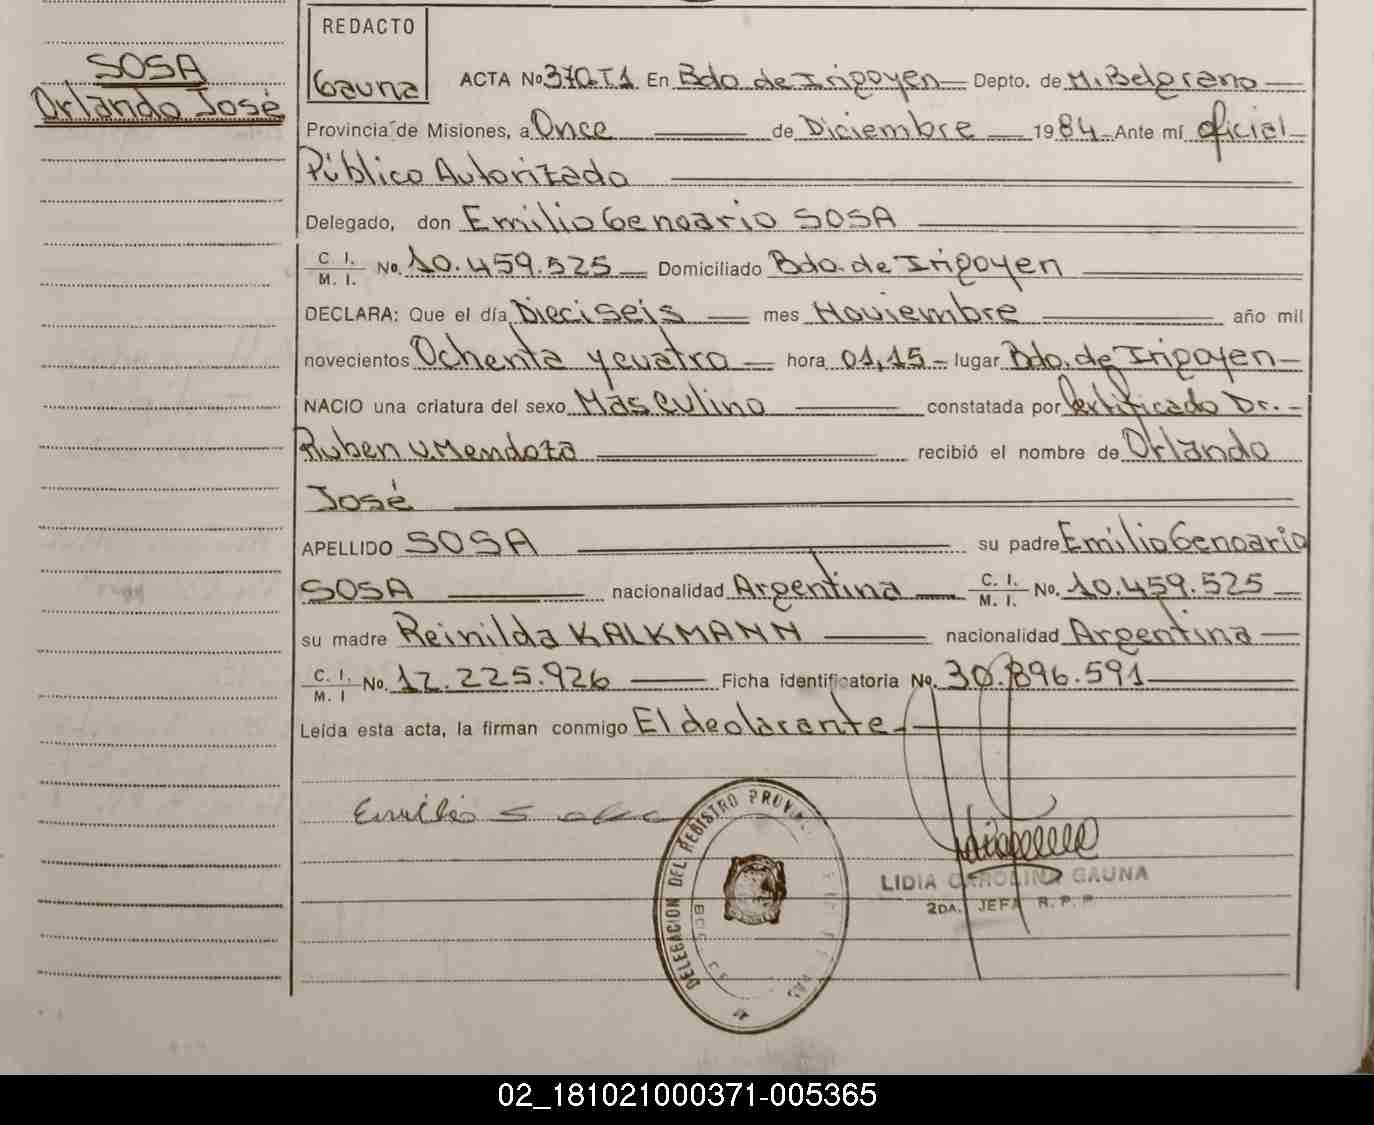 REDACTO
Gauna
SOSA
Orlando José
ACTA No 370.T1 En Bdo de Irigoyen Depto. de M. Belgrano
Provincia de Misiones, a Once de Diciembre 1984 Ante mí oficial
Público Autorizado
Delegado, don Emilio Genoario SOSA
C. I.
M. I. No. 10.459.525 Domiciliado Bdo. de Irigoyen
DECLARA: Que el día Dieciseis mes Noviembre año mil
novecientos Ochenta y cuatro hora 01,15 lugar Bdo. de Irigoyen
NACIO una criatura del sexo Masculino constatada por Certificado Dr.
Ruben V. Mendoza recibió el nombre de Orlando
José
APELLIDO SOSA su padre Emilio Genoario
SOSA nacionalidad Argentina C. I. M. I. No. 10.459.525
su madre Reinilda KALKMANN nacionalidad Argentina
C. I. M. I No. 12.225.926 Ficha identificatoria No. 30.896.591
Leída esta acta, la firman conmigo El declarante
Emilio Sosa
DELEGACION DEL REGISTRO
LIDIA CAROLINA GAUNA
2DA. JEFA R. P. P
02_181021000371-005365